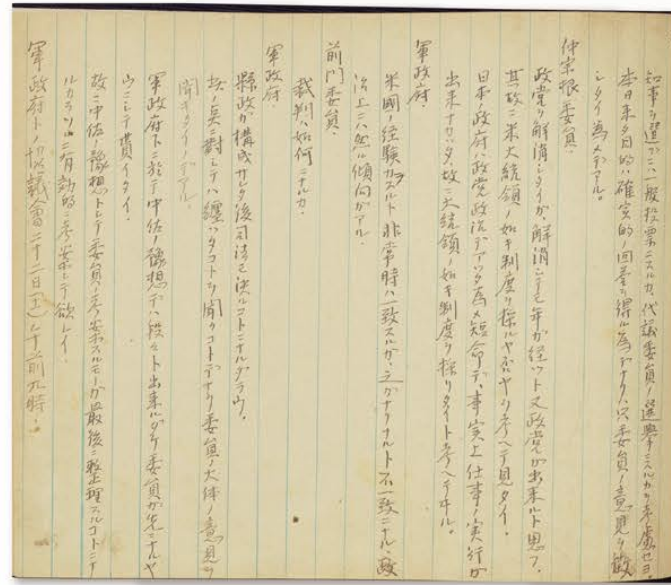 知事ヲ選ブニハ一般投票ニスルカ、代議委員ノ選挙ニスルカヲ考慮セヨ
本日来タ目的ハ確実的ノ回答ヲ得ル為デナク、只委員ノ意見ヲ
シタイ為メデアル。
仲宗根委員.
政党ヲ解消シタイガ、解消シテモ年ガ経ツト又政党ガ出来ルト思フ.
其故ニ米大統領ノ如キ制度ヲ採ルヤ否ヤヲ考ヘテ見タイ.
日本ノ政府ハ政党政治デアツタ為メ短命デ、事実上仕事ノ実行ガ
出来ナカツタ、故ニ大統領ノ如キ制度ヲ採リタイト考ヘテヰル。
軍政府
米国ノ経験カラスルト非常時ハ一致スルガ、之ガナクナルト不一致ニナル、政
治上ニハ然ル傾向ガアル.
前門委員.
裁判ハ如何ニナルカ.
軍政府
縣政ガ構成サレタ後司法モ決ルコトニナルダラウ.
於ノ兵ニ對シテハ纏ツタコトヲ聞クコトデナク委員ノ大体ノ意見ヲ
聞キタイノデアル.
軍政府下ニ於テ中佐ノ豫想デハ 出来ルダケ委員ガ ニナルヤ
ウニシテ貰イタイ.
故ニ中佐ノ豫想トシテ委員ノ考ヘ案スルモノガ最後ニ整理スルコトニナ
ルカラソコニ有効的ニ考案シテ欲レイ.
軍政府トノ協議會二十二日(土)午前九時.